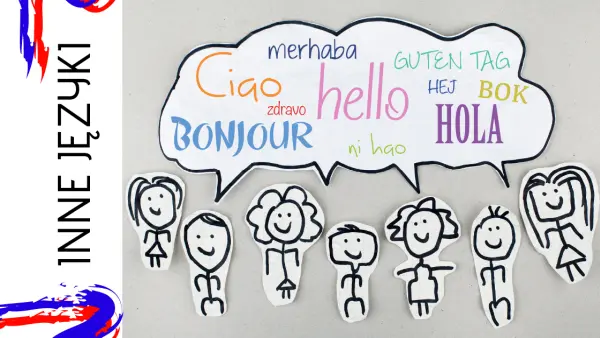 INNE JĘZYKI
merhaba
GUTEN TAG
Ciao
hello
HEJ
BOK
zdravo
HOLA
BONJOUR
ni hao